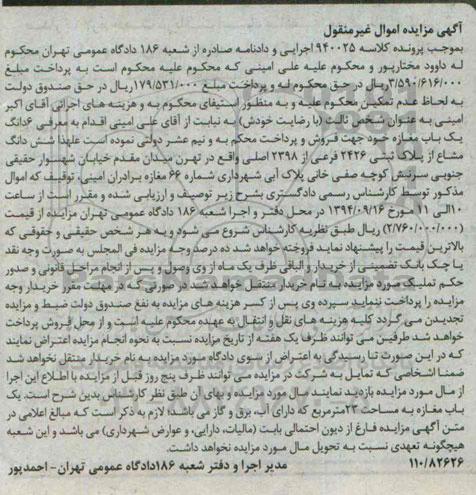 آگهی مزایده اموال غیرمنقول
بموجب پرونده کلاسه ۹۴۰۰۲۵ اجرایی و دادنامه صادره از شعبه ۱۸۶ دادگاه عمومی تهران محکوم
له داوود مختارپور و محکوم علیه علی امینی که محکوم علیه محکوم است به پرداخت مبلغ
۳/۵۹۰/۶۱۶/۰۰۰ریال در حق محکوم له و پرداخت مبلغ ۱۷۹/۵۳۱/۰۰۰ریال در حق صندوق دولت
به لحاظ عدم تمکین محکوم علیه و به منظور استیفای محکوم به و هزینه های اجرائی آقای اکبر
امینی به عنوان شخص ثالث (با رضایت خودش) به نیابت از آقای علی امینی اقدام به معرفی ۶دانگ
یک باب مغازه خود جهت فروش و پرداخت محکم به و نیم عشر دولتی نموده است علهذا شش دانگ
مشاع از پلاک ثبتی ۲۴۲۶ فرعی از ۲۳۹۸ اصلی واقع در تهرن میدان مقدم خیابان شهسوار حقیقی
جنوبی سرنبش کوچه صفی خانی پلاک آبی شهرداری شماره ۶۶ مغازه برادران امینی، توقیف که اموال
مذکور توسط کارشناس رسمی دادگستری بشرح زیر توصیف و ارزیابی شده و مقرر است از ساعت
۱۰الی ۱۱ مورخ ۱۳۹۴/۰۹/۱۶ در محل دفتر و اجرا شعبه ۱۸۶ دادگاه عمومی تهران مزایده از قیمت
(۲/۷۶۰/۰۰۰/۰۰۰) ریال طبق نظریه کارشناس شروع می شود و به هر شخص حقیقی و حقوقی که
بالاترین قیمت را پیشنهاد نماید فروخته خواهد شد ده درصد وجه مزایده فی المجلس به صورت وجه نقد
یا چک بانک تضمینی از خریدار و الباقی ظرف یک ماه از وی وصول و پس از انجام مراحل قانونی و صدور
حکم تملیک مورد مزایده به نام خریدار منتقل خواهد شد در صورتی که در مهلت مقرر خریدار وجه
مزایده را پرداخت ننماید سپرده وی پس از کسر هزینه های مزایده به نفع صندوق دولت ضبط و مزایده
تجدیدمی گردد کلیه هزینه های نقل و انتقال به عهده محکوم علیه است و از محل فروش پرداخت
خواهد شد طرفین می توانند ظرف یک هفته از تاریخ مزایده نسبت به نحوه انجام مزایده اعتراض نمایند
که در این صورت تا رسیدگی به اعتراض از سوی دادگاه مورد مزایده به نام خریدار منتقل نخواهد شد
ضمنا اشخاصی که تمایل به شرکت در مزایده می توانند ظرف پنج روز قبل از مزایده با اطلاع این اجرا
از مال مورد مزایده بازدید نمایند مال مورد مزایده و بهای آن طبق نظر کارشناس بدین شرح است. یک
باب مغازه به مساحت ۲۳مترمربع که دارای آب، برق و گاز می باشد؛ لازم به ذکر است که مبالغ اعلامی در
متن آگهی مزایده فارغ از دیون احتمالی بابت (مالیات، دارایی، و عوارض شهرداری) می باشد و این شعبه
هیچگونه تعهدی نسبت به تحویل مال مورد مزایده نخواهد داشت.
۱۱۰/۸۲۶۲۶ مدیر اجرا و دفتر شعبه ۱۸۶دادگاه عمومی تهران- احمدپور